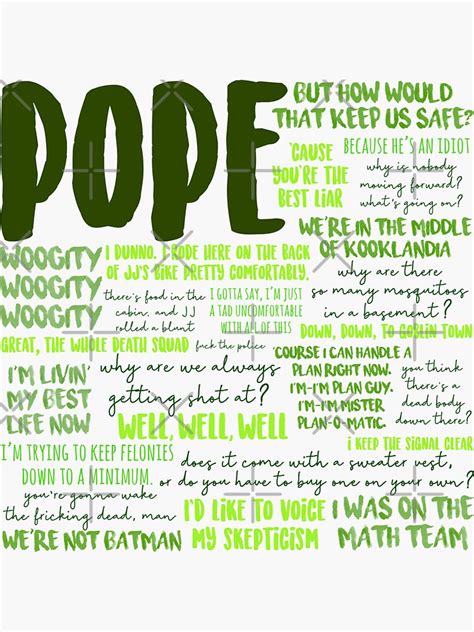 POPE
BUT HOW WOULD
THAT KEEP US SAFE?
'CAUSE
YOU'RE THE
BEST LIAR
BECAUSE HE'S AN IDIOT
why is nobody
moving forward?
what's going on?
WE'RE IN THE MIDDLE
OF KOOKLANDIA
WOOGITY
WOOGITY
WOOGITY
I DUNNO. I RODE HERE ON THE BACK
OF JJ'S BIKE PRETTY COMFORTABLY.
there's food in the
cabin, and JJ
rolled a blunt
I GOTTA SAY, I'M JUST
A TAD UNCOMFORTABLE
WITH ALL OF THIS
why are there
so many mosquitoes
in a basement?
DOWN, DOWN, TO GOBLIN TOWN
GREAT, THE WHOLE DEATH SQUAD
fuck the police
I'M LIVIN'
MY BEST
LIFE NOW
why are we always
getting shot at?
'COURSE I CAN HANDLE A
PLAN RIGHT NOW.
I'M-I'M PLAN GUY.
I'M-I'M MISTER
PLAN-O-MATIC.
you think
there's a
dead body
down there?
WELL, WELL, WELL
I KEEP THE SIGNAL CLEAR
I'M TRYING TO KEEP FELONIES
DOWN TO A MINIMUM.
does it come with a sweater vest,
or do you have to buy one on your own?
you're gonna wake
the fricking dead, man
I'D LIKE TO VOICE
MY SKEPTICISM
I WAS ON THE
MATH TEAM
WE'RE NOT BATMAN